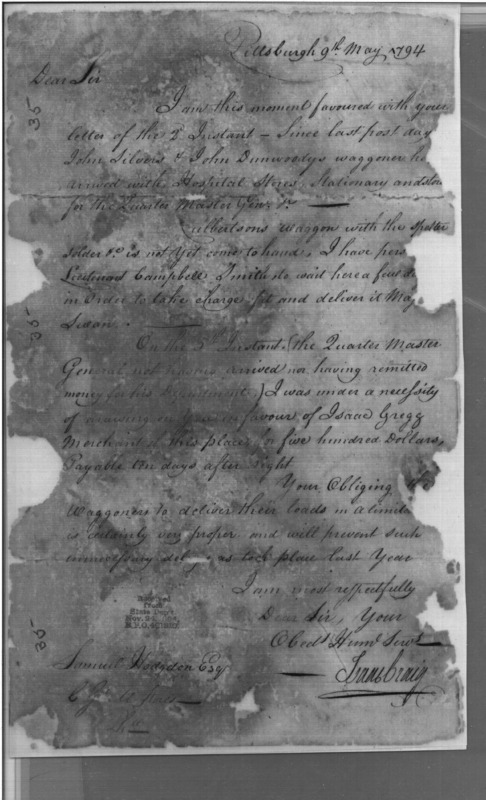 Pittsburgh 9th May 1794
Dear Sir
I am this moment favoured with your
letter of the 2d Instant – Since last post day
John Silvers & John Dunwoodys waggoner
arrived with Hospital Stores, Stationary and
for the Quarter Master Genl. &c.
Culbertsons Waggon with the
Solder &c. is not yet come to hand, I have
Lieutenant Campbell Smith to wait here a few
in Order to take charge of it and deliver it
On the Instant, (the Quarter Master
General not having arrived nor having remitted
money for his Department) I was under a necessity
of drawing on you in favour of Isaac Gregg
Merchant of this place for five hundred Dollars,
Payable ten days after sight
Your Obliging the
Waggoners to deliver their loads in a limited
is certainly very proper and will prevent such
unnecessary delay as took place last Year
I am most respectfully
Dear Sir, Your
Obedt Humb Servt
Isaac Craig
Received
From
State Dept.
Nov. 24
Samuel Hodgdon Esqr
35
35
35